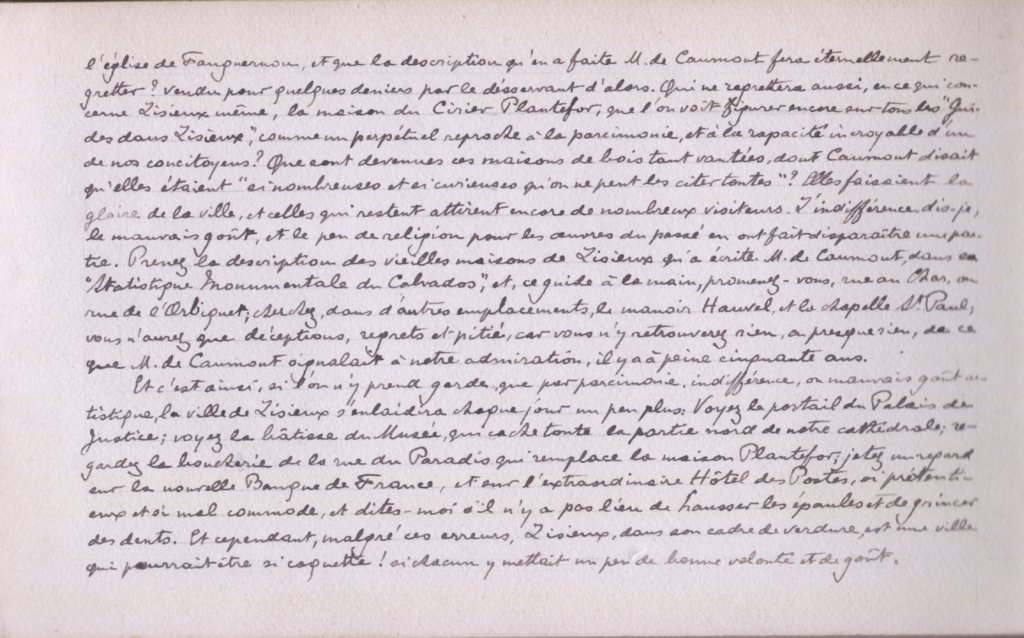 l'église de Fauguernon, et que la description qu'en a faite M. de Caumont fera éternellement re-
gretter ? vendu pour quelques deniers par le désservant d'alors. Qui ne regrettera aussi, en ce qui con-
cerne Lisieux même, la maison du Cirier Plantefor, que l'on voit figurer encore sur tous les "Gui-
des dans Lisieux", comme un perpétuel reproche à la parcimonie, et à la rapacité incroyable d'un
de nos concitoyens ? Que sont devenues ces maisons de bois tant vantées, dont Caumont disait
qu'elles étaient "si nombreuses et si curieuses qu'on ne peut les citer toutes" ? Elles faisaient la
gloire de la ville, et celles qui restent attirent encore de nombreux visiteurs. L'indifférence, dis-je,
le mauvais goût, et le peu de religion pour les œuvres du passé en ont fait disparaître une par-
tie. Prenez la description des vieilles maisons de Lisieux qu'a écrite M. de Caumont, dans sa
"Statistique Monumentale du Calvados", et, ce guide à la main, promenez-vous, rue au Char, ou
rue de l'Orbiquet; cherchez, dans d'autres emplacements, le manoir Hauvel, et la chapelle St Paul,
vous n'aurez que déceptions, regrets et pitié, car vous n'y retrouverez rien, ou presque rien, de ce
que M. de Caumont signalait à notre admiration, il y a à peine cinquante ans.
Et c'est ainsi, si l'on n'y prend garde, que par parcimonie, indifférence, ou mauvais goût ar-
tistique, la ville de Lisieux s'enlaidira chaque jour un peu plus: Voyez le portail du Palais de
Justice; voyez la bâtisse du Musée, qui cache toute la partie nord de notre cathédrale; re-
gardez la boucherie de la rue du Paradis qui remplace la maison Plantefor; jetez un regard
sur la nouvelle Banque de France, et sur l'extraordinaire Hôtel des Postes, si prétenti-
eux et si mal commode, et dites-moi s'il n'y a pas lieu de hausser les épaules et de grincer
des dents. Et cependant, malgré ces erreurs, Lisieux, dans son cadre de verdure, est une ville
qui pourrait être si coquette ! si chacun y mettait un peu de bonne volonté et de goût.